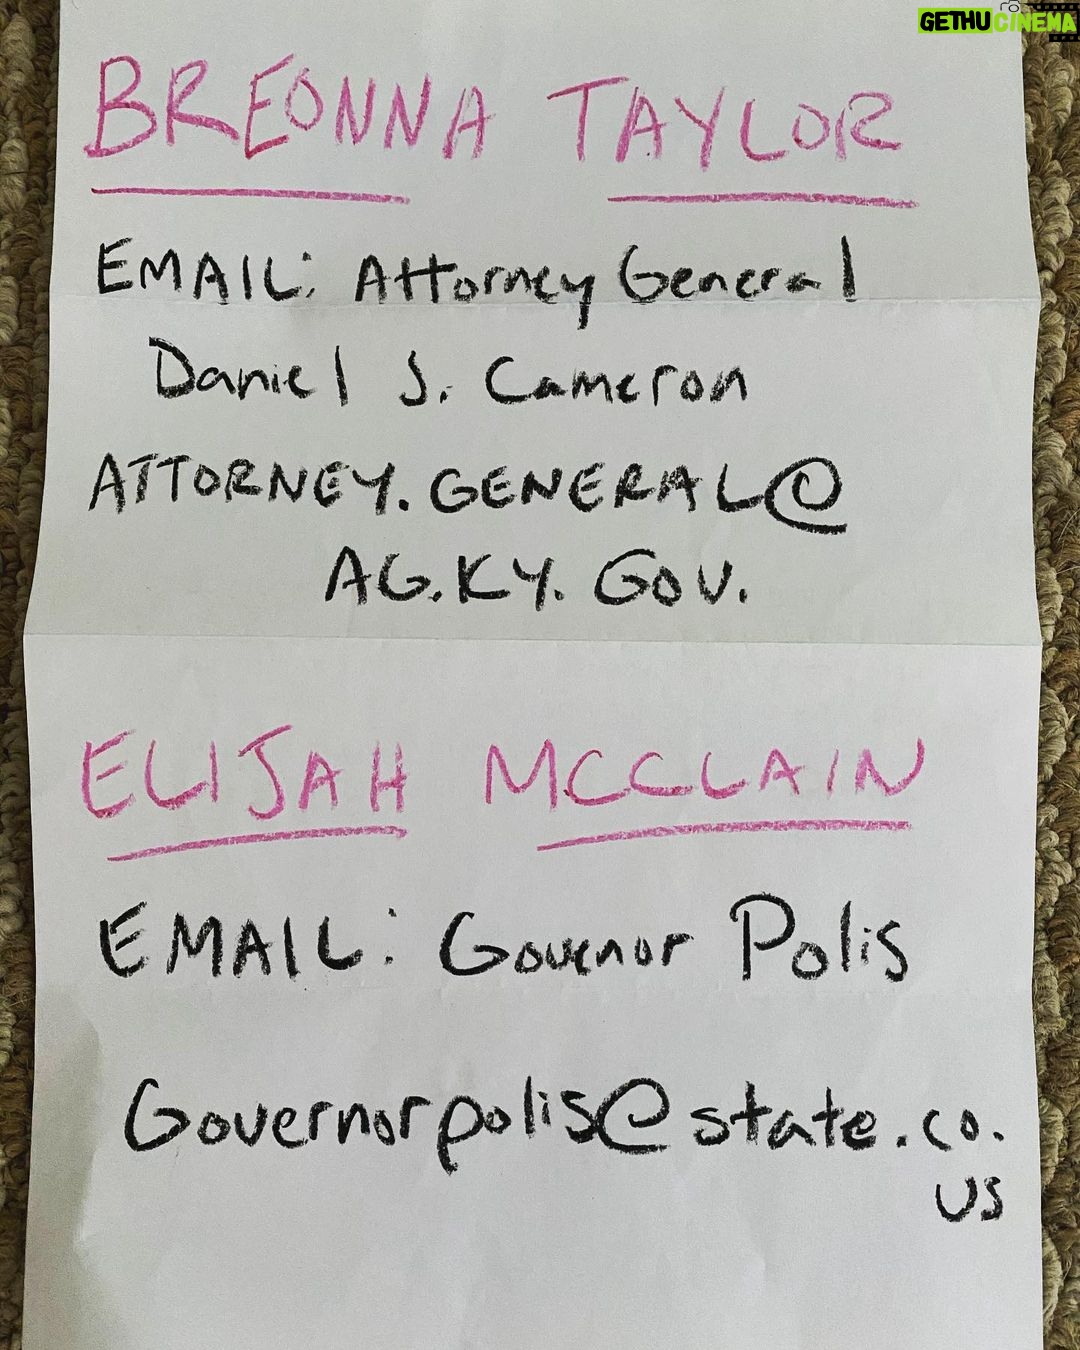 GETHUCINEMA
BREONNA TAYLOR
EMAIL: Attorney General
Daniel J. Cameron
ATTORNEY.GENERAL@
AG.KY.GOV.
ELIJAH MCCLAIN
EMAIL: Govenor Polis
Governorpolis@state.co.
us